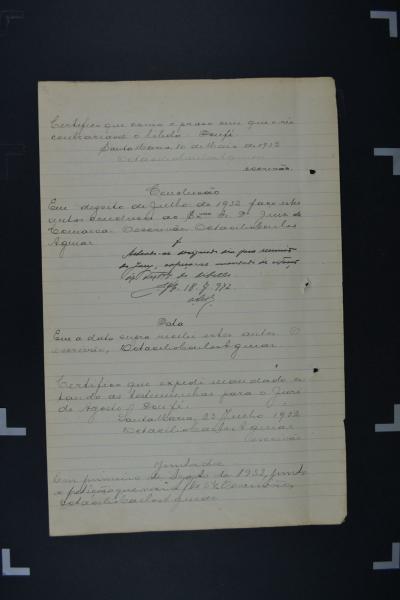 Certifico que correu o praso sem que o réu
contrariasse o libélo. Doufé.
Santa Maria, 10 de Maio de 1932
Octacilio Carlos Aguiar
escrivão.
Conclusão
Em desoito de Julho de 1932 faço estes
autos conclusos ao Exmo Sr. Dr. Juiz de
Comarca. O escrivão, Octacilio Carlos
Aguiar
designado dia para reunião
do Jury, mandado de
18.7.932
Data
Em a data supra recebi estes autos. O
escrivão, Octacilio Carlos Aguiar
Certifico que expedi mandado ci-
tando as testemunhas para o Juri
de Agosto. Doufé.
Santa Maria, 23 Julho 1932
Octacilio Carlos Aguiar
Escrivão
Juntada
Em primeiro de Agosto de 1932, junto
a petição que O Escrivão,
Octacilio Carlos Aguiar